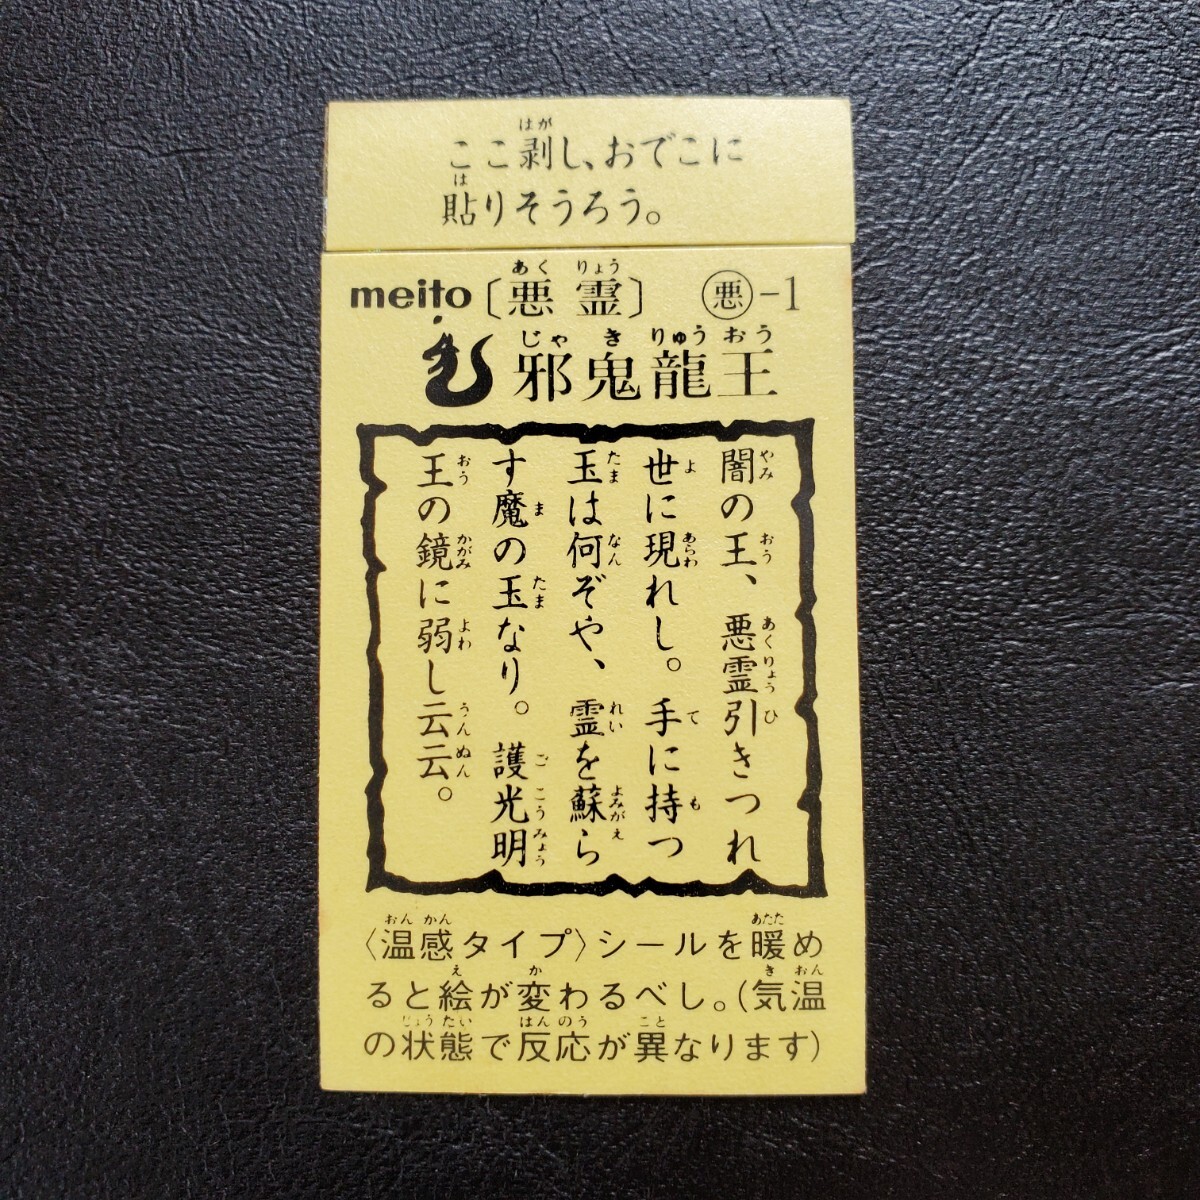 ここ剥し、おでこに
貼りそうろう。
meito〔悪霊〕 悪-1
邪鬼龍王
闇の王、悪霊引きつれ
世に現れし。手に持つ
玉は何ぞや、霊を蘇ら
す魔の玉なり。護光明
王の鏡に弱し云云。
〈温感タイプ〉シールを暖め
ると絵が変わるべし。(気温
の状態で反応が異なります)